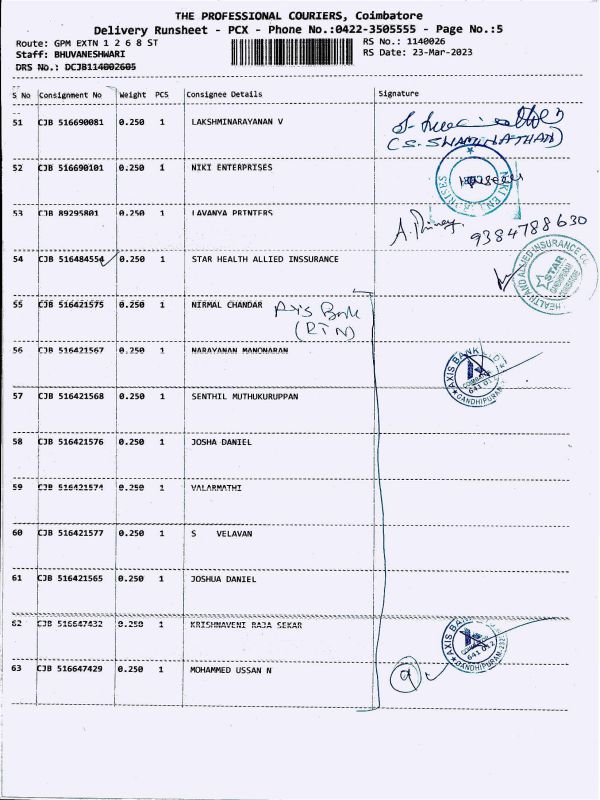 THE PROFESSIONAL COURIERS, Coimbatore
Delivery Runsheet - PCX - Phone No.:0422-3505555 - Page No.:5
Route: GPM EXTN 1 2 6 8 ST RS No.: 1140026
Staff: BHUVANESHWARI RS Date: 23-Mar-2023
DRS No.: DCJB114002605
S No Consignment No Weight PCS Consignee Details Signature
51 CJB 516690081 0.250 1 LAKSHMINARAYANAN V
(S. SWAMINATHAN)
52 CJB 516690101 0.250 1 NIKI ENTERPRISES
53 CJB 89295801 0.250 1 LAVANYA PRINTERS
9384788630
54 CJB 516484554 0.250 1 STAR HEALTH ALLIED INSSURANCE
STAR
55 CJB 516421575 0.250 1 NIRMAL CHANDAR Axis Bank
(RTN)
56 CJB 516421567 0.250 1 NARAYANAN MANOHARAN
AXIS BANK
GANDHIPURAM
57 CJB 516421568 0.250 1 SENTHIL MUTHUKURUPPAN
58 CJB 516421576 0.250 1 JOSHA DANIEL
59 CJB 516421574 0.250 1 VALARMATHI
60 CJB 516421577 0.250 1 S VELAVAN
61 CJB 516421565 0.250 1 JOSHUA DANIEL
62 CJB 516647432 0.250 1 KRISHNAVENI RAJA SEKAR
63 CJB 516647429 0.250 1 MOHAMMED USSAN N
9